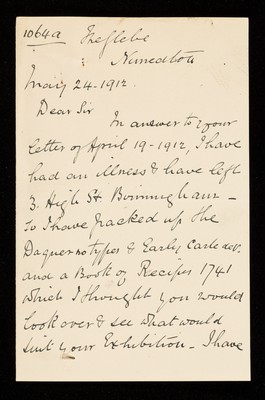 1064a The Glebe
Nuneaton
May 24 - 1912
Dear Sir
In answer to your
letter of April 19 - 1912, I have
had an illness & have left
3. High St Birmingham -
So I have packed up the
Daguerrotypes & Early Carte de V.
and a Book of Recipes 1741
which I thought you would
look over & see what would
suit your Exhibition - I have